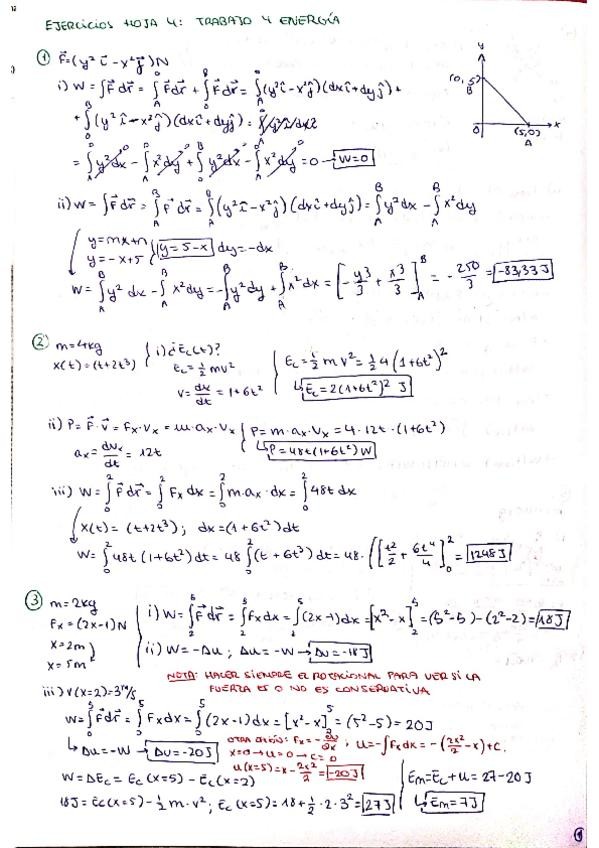 EJERCICIOS HOJA 4: TRABAJO Y ENERGÍA
① F⃗=(y² î - x² ĵ)N
i) W=∫F⃗dr⃗ = ∫_A^0 F⃗dr⃗ + ∫_0^B F⃗dr⃗ = ∫_A^0 (y² î - x² ĵ)(dx î + dy ĵ) +
+ ∫_0^B (y² î - x² ĵ)(dx î + dy ĵ) =
= ∫_A^0 y²dx - ∫_A^0 x²dy + ∫_0^B y²dx - ∫_0^B x²dy = 0 → W=0
y
(0,5)
B
0
(5,0)
A
x
ii) W=∫F⃗dr⃗ = ∫_A^B F⃗dr⃗ = ∫_A^B (y² î - x² ĵ)(dx î + dy ĵ) = ∫_A^B y²dx - ∫_A^B x²dy
y=mx+n
y=-x+5
y=5-x
dy=-dx
W=∫_A^B y²dx - ∫_A^B x²dy = -∫_A^B y²dy + ∫_A^B x²dx = [-y³/3 + x³/3]_A^B = -250/3 = -83,33 J
② m=4kg
x(t)=(t+2t³)
i) ¿Ec(t)?
Ec=½mv²
v=dx/dt=1+6t²
Ec=½mv²=½4(1+6t²)²
↳ Ec=2(1+6t²)² J
ii) P=F⃗·v⃗=Fx·Vx=m·ax·Vx
ax=dVx/dt=12t
P=m·ax·Vx=4·12t·(1+6t²)
↳ P=48t(1+6t²)W
iii) W=∫_0^2 F⃗dr⃗=∫_0^2 Fx dx=∫_0^2 m·ax·dx=∫_0^2 48t dx
x(t)=(t+2t³); dx=(1+6t²)dt
W=∫_0^2 48t(1+6t²)dt=48∫_0^2 (t+6t³)dt=48·([t²/2+6t⁴/4]_0^2=1248J
③ m=2kg
Fx=(2x-1)N
x=2m
x=5m
i) W=∫_2^5 F⃗dr⃗=∫_2^5 Fxdx=∫_2^5 (2x-1)dx=[x²-x]_2^5=(5²-5)-(2²-2)=18J
ii) W=-ΔU; ΔU=-W → ΔU=-18J
NOTA: HACER SIEMPRE EL ROTACIONAL PARA VER SI LA
FUERZA ES O NO ES CONSERVATIVA
iii) V(x=2)=3m/s
W=∫_0^5 F⃗dr⃗=∫_0^5 Fxdx=∫_0^5 (2x-1)dx=[x²-x]_0^5=(5²-5)=20J
↳ ΔU=-W → ΔU=-20J
OTRA OPCIÓN: Fx=-dU/dx; U=-∫Fxdx=-(2x²/2-x)+C.
x=0→U=0→C=0
U(x=5)=x-2x²/2=-20J
W=ΔEc=Ec(x=5)-Ec(x=2)
18J=Ec(x=5)-½m·v²; Ec(x=5)=18+½·2·3²=27J
Em=Ec+U=27-20J
↳ Em=7J
①